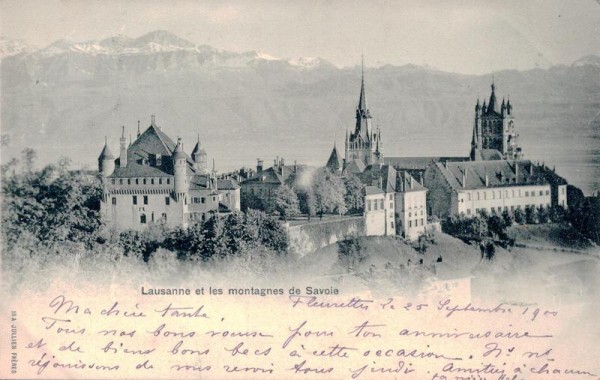 Lausanne et les montagnes de Savoie
Fleurettes le 25 Septembre 1900
Ma chère tante.
Tous nos bons voeux pour ton anniversaire
et de biens bons becs à cette occasion. Ns ns
réjouissons de vous revoir tous jeudi. Amitiés à chacun
JULLIEN FRÈRES